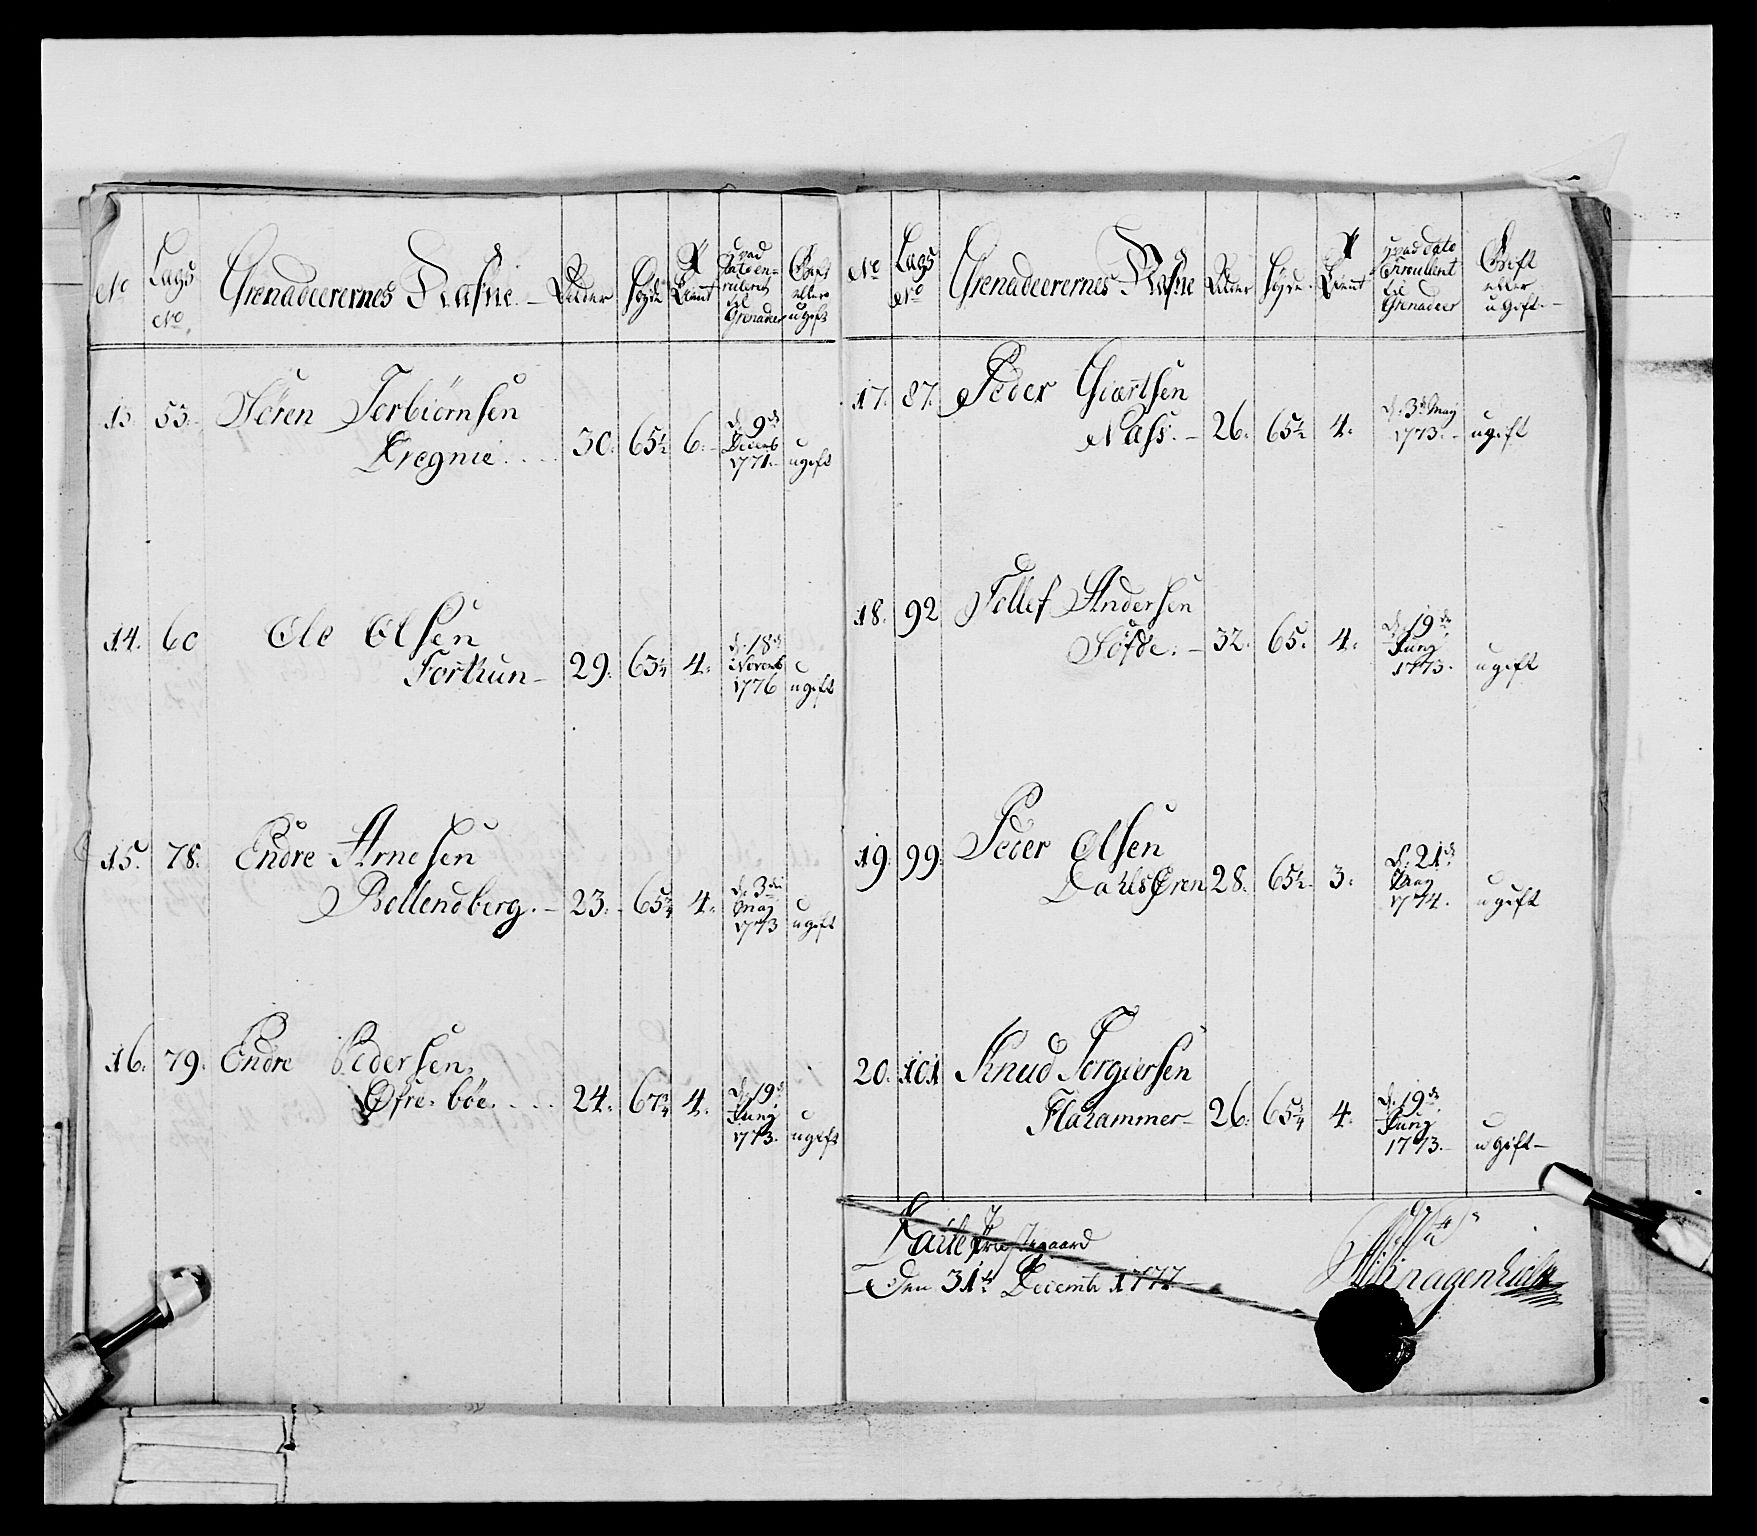 No Lags No Grenadeerernes Nafne Alder Høyde Tient Hvad dato en-rulleret til Grenadeer Gift eller ugift
13. 53. Sören Torbiörnsen
Dregnie. 30. 65½ 6. d. 9de Decemb 1771. ugift
14. 60 Ole Olsen
Forthun 29. 63¼ 4. d. 18de Novemb 1776 ugift
15. 78. Endre Arnesen
Bollendberg. 23. 65¾ 4. d. 3die May 1773 ugift
16. 79. Endre Pedersen.
Øfre böe. 24. 67¾ 4. d. 19de Juny 1773. ugift
No Lags No Grenadeerernes Nafne Alder Høyde Tient Hvad dato Enroullent til Grenadeer Gift eller ugift.
17. 87. Peder Giærtsen
Nass. 26. 65½ 4. d. 3de May 1773. ugift
18. 92 Tollef Andersen
Söfde. 32. 65. 4. d. 19de Juny 1773. ugift
19. 99. Peder Olsen
Dahlsøren 28. 65½ 3. d. 21de May 1774. ugift
20. 101 Knud Torgiersen
Flahammer 26. 65¾ 4. d. 19de Juny 1773. ugift
Præstegaard
Den 31te Decemb 1777.